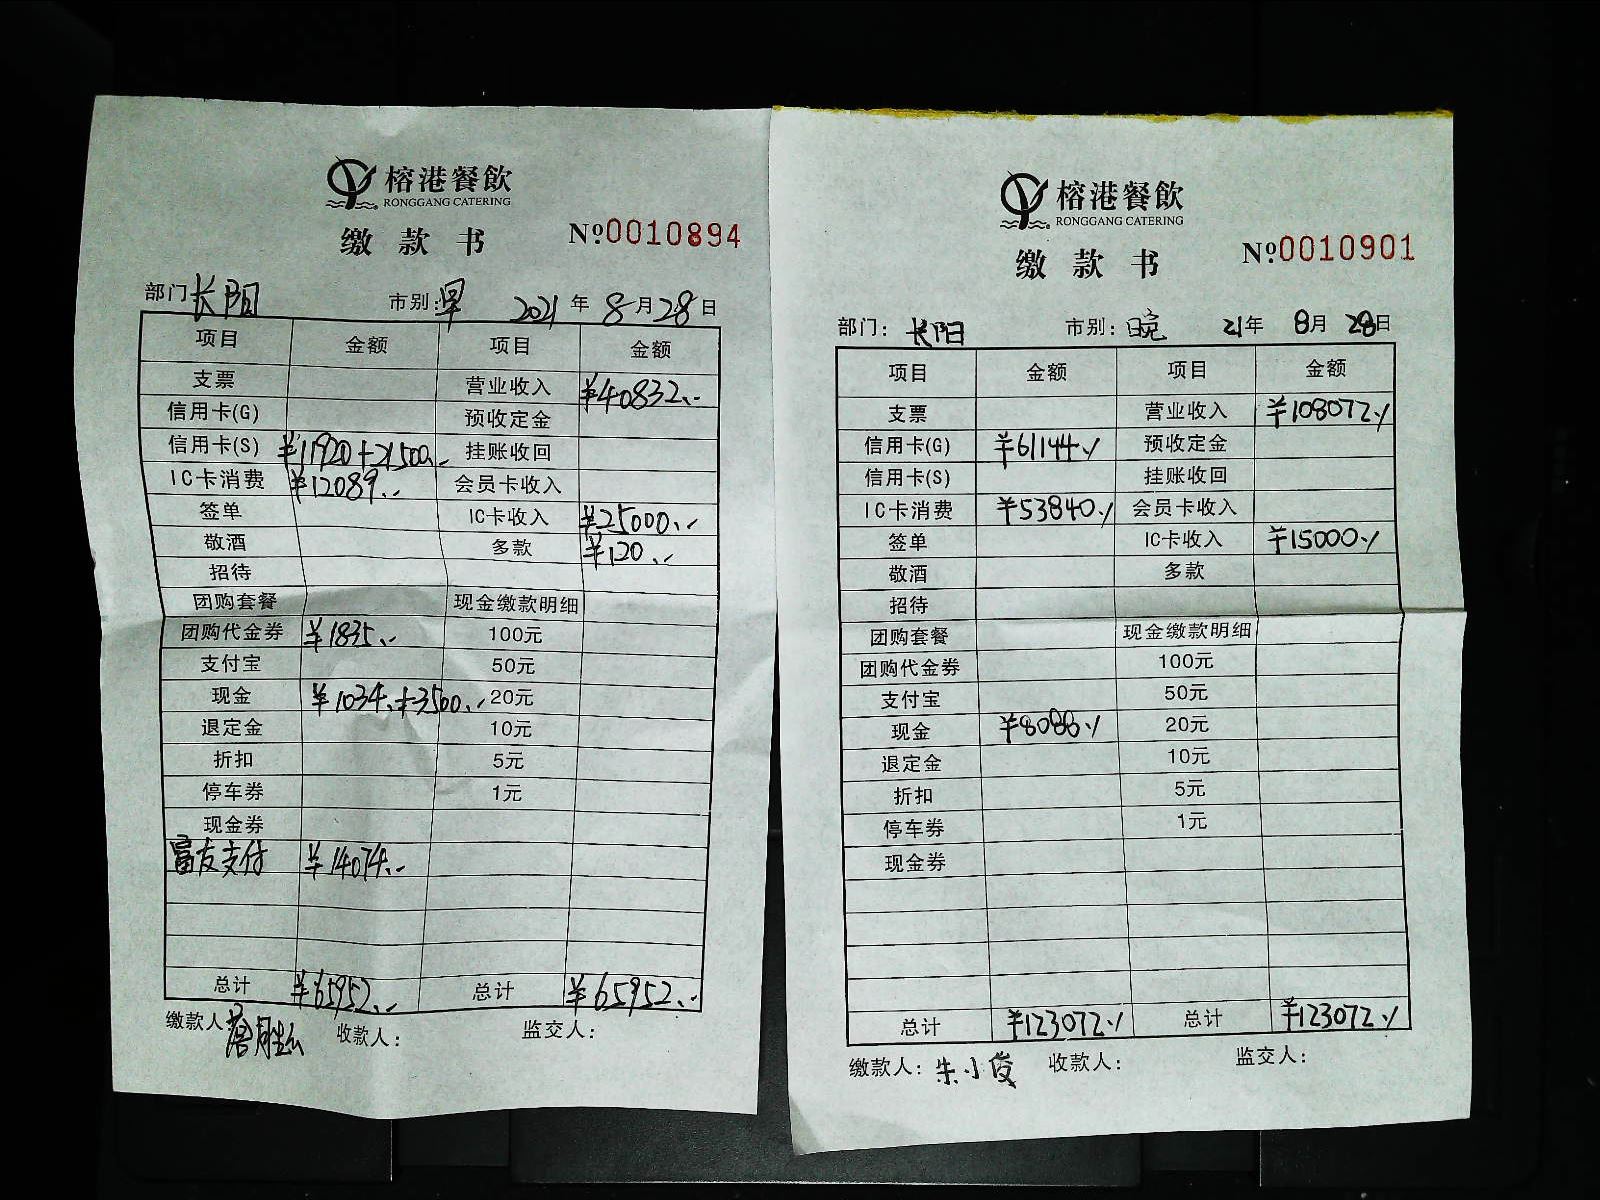 榕港餐飲
RONGGANG CATERING
缴款书 №0010894
部门 长阳 市别:早 2021年8月28日
项目 金额 项目 金额
支票 营业收入 ¥40832.-
信用卡(G) 预收定金
信用卡(S) ¥11920+21500.- 挂账收回
IC卡消费 ¥12089.- 会员卡收入
签单 IC卡收入 ¥25000.-
敬酒 多款 ¥120.-
招待
团购套餐 现金缴款明细
团购代金券 ¥1835.- 100元
支付宝 50元
现金 ¥1034.+3500.- 20元
退定金 10元
折扣 5元
停车券 1元
现金券
富友支付 ¥14074.-
总计 ¥65952.- 总计 ¥65952.-
缴款人 收款人: 监交人:
榕港餐飲
RONGGANG CATERING
缴款书 №0010901
部门: 长阳 市别: 晚 21年8月28日
项目 金额 项目 金额
支票 营业收入 ¥108072.-
信用卡(G) ¥61144.- 预收定金
信用卡(S) 挂账收回
IC卡消费 ¥53840.- 会员卡收入
签单 IC卡收入 ¥15000.-
敬酒 多款
招待
团购套餐 现金缴款明细
团购代金券 100元
支付宝 50元
现金 ¥8088.- 20元
退定金 10元
折扣 5元
停车券 1元
现金券
总计 ¥123072.- 总计 ¥123072.-
缴款人: 朱小俊 收款人: 监交人: